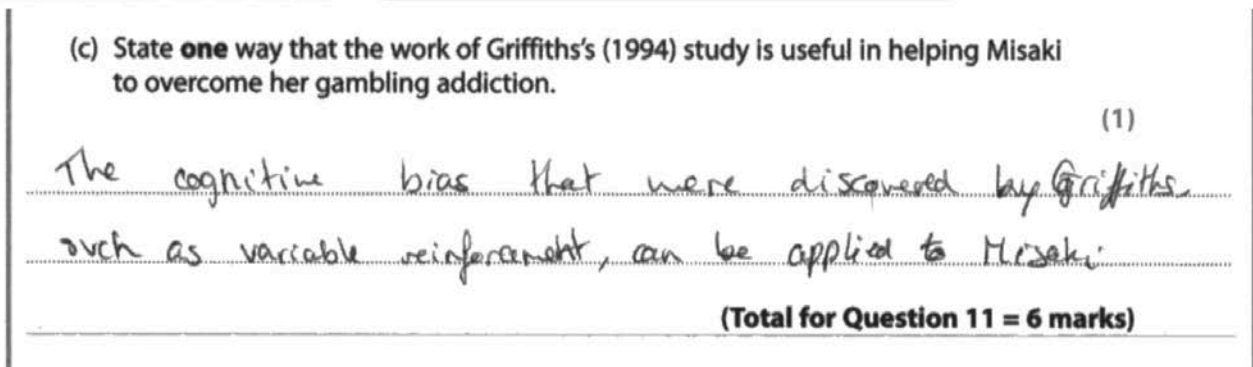 (c) State one way that the work of Griffiths's (1994) study is useful in helping Misaki
to overcome her gambling addiction.
(1)
The cognitive bias that were discovered by Griffiths.
such as variable reinforcement, can be applied to Misaki.
(Total for Question 11 = 6 marks)